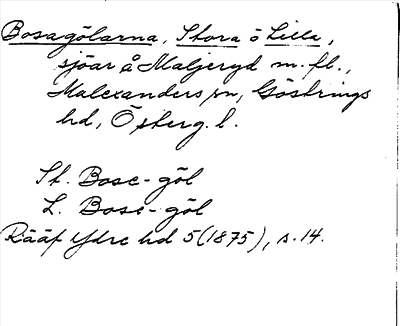 Bosagölarna, Stora o Lilla,
sjöar å Maljeryd m. fl.,
Malexanders sn, Göstrings
hd, Österg. l.
St. Bose-göl
L. Bose-göl
Rääf Ydre hd 5(1875), s. 14.